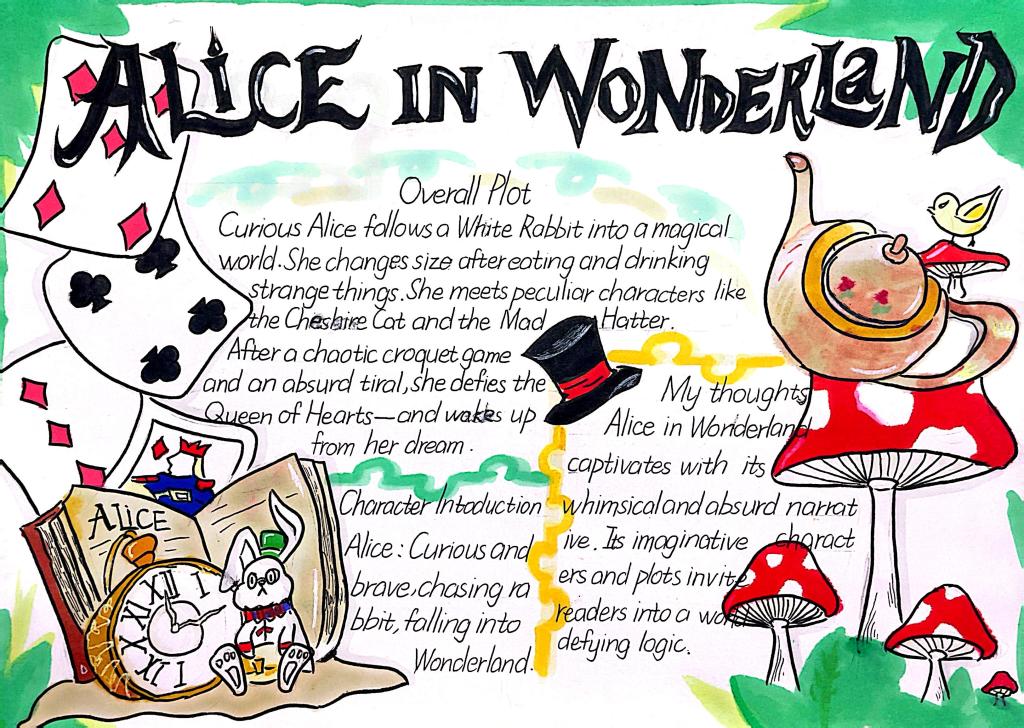 ALiCE IN WONDERLaND
Overall Plot
Curious Alice follows a White Rabbit into a magical
world. She changes size after eating and drinking
strange things. She meets peculiar characters like
the Cheshire Cat and the Mad Hatter.
After a chaotic croquet game
and an absurd tiral, she defies the
Queen of Hearts—and wakes up
from her dream.
My thoughts
Alice in Wonderland
captivates with its
whimsical and absurd narrat
ive. Its imaginative charact
ers and plots invite
readers into a world
defying logic.
Character Intoduction
Alice: Curious and
brave, chasing ra
bbit, falling into
Wonderland.
ALICE
XII
I
XI
X
IX
VIII
VII